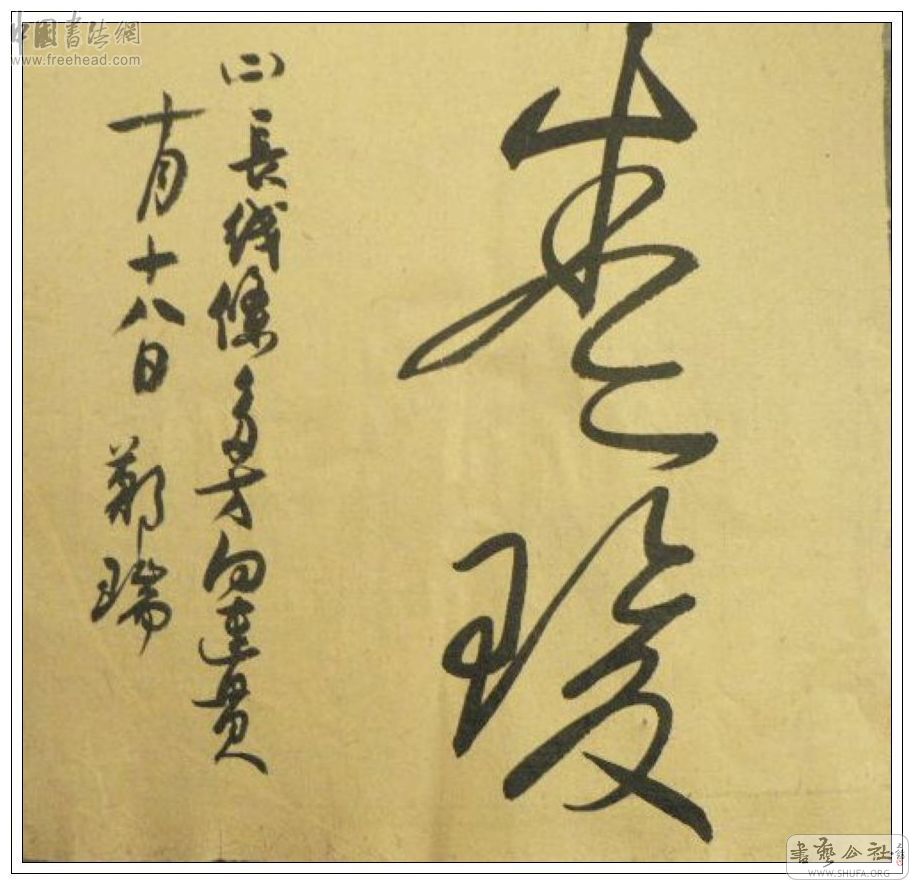 中國書法網
www.freehead.com
㈡長线條多方向連貫
十月十八日 鄭瑞
書藝公社
WWW.SHUFA.ORG